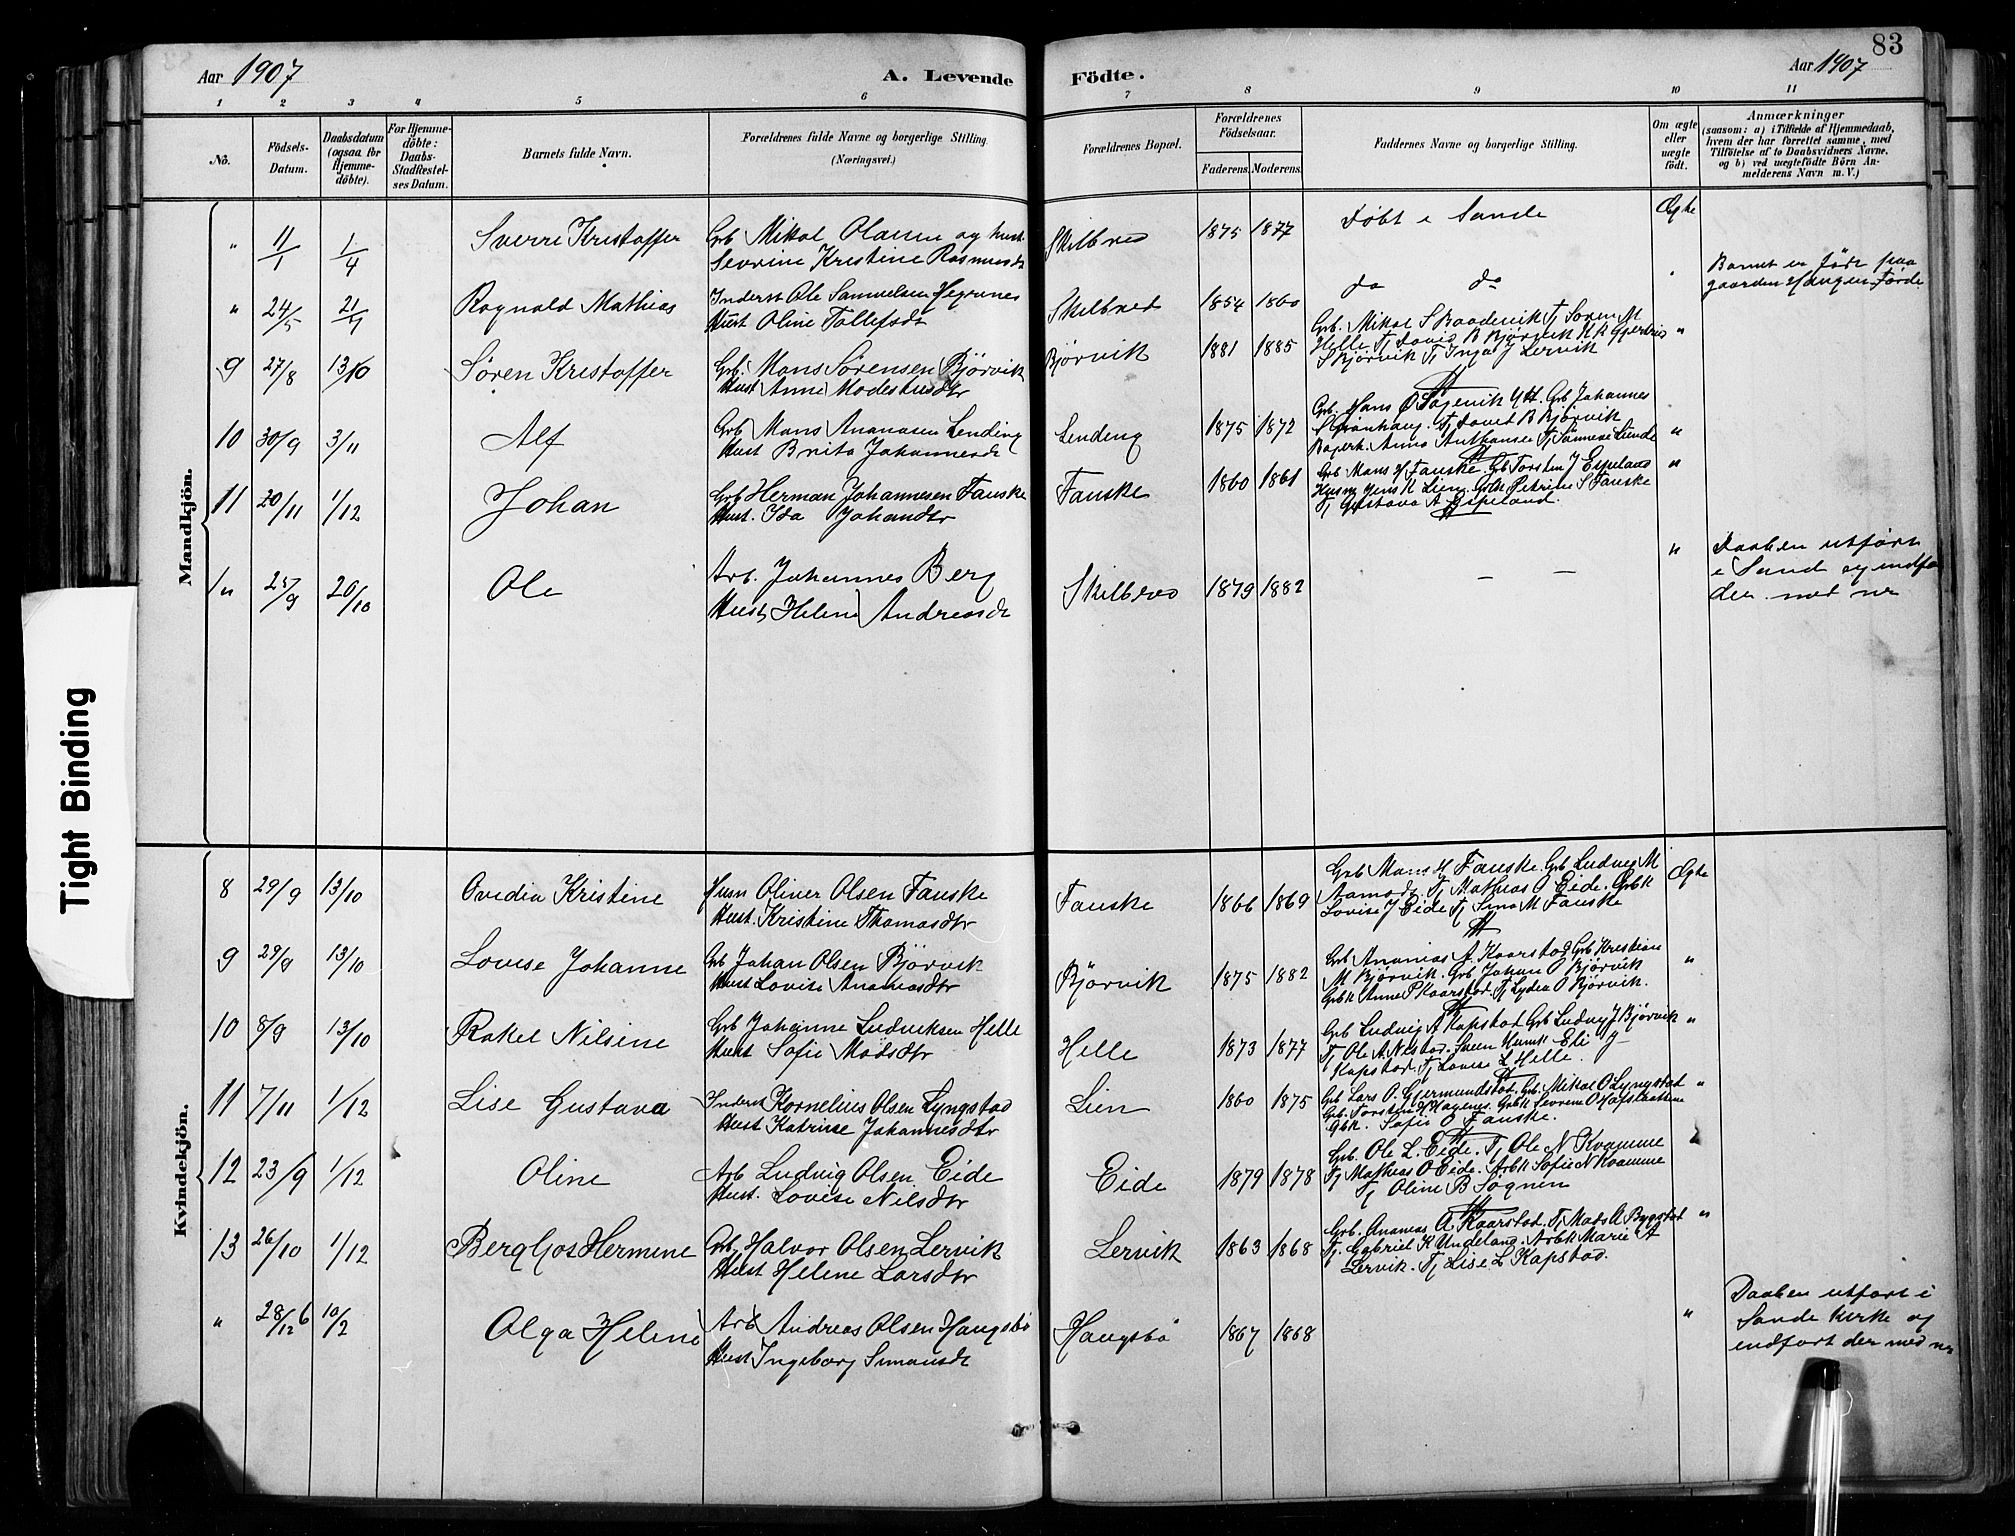 83
Aar 1907
A. Levende
Födte.
Aar 1907
1 2 3 4 5 6 7 8 9 10 11
No.
Födsels-
Datum.
Daabsdatum
(ogsaa for
Hjemme-
döbte).
For Hjemme-
döbte:
Daabs-
Stadfæstel-
ses Datum.
Barnets fulde Navn.
Forældrenes fulde Navne og borgerlige Stilling.
(Næringsvei.)
Forældrenes Bopæl.
Forældrenes
Födselsaar.
Faderens. Moderens.
Faddernes Navne og borgerlige Stilling.
Om ægte
eller
uægte
födt.
Anmærkninger
(saasom: a) i Tilfælde af Hjemmedaab,
hvem der har forrettet samme, med
Tilföielse af to Daabsvidners Navne,
og b) ved uægtefödte Börn An-
melderens Navn m. V.)
Mandkjön.
" 11/1 1/4 Sverre Kristoffer
Grb Mikal Olausen og hust.
Sevrine Kristine Rasmusdt
Skilbred 1875 1877 Døbt i Sande Ægte
" 24/5 21/7 Ragnald Mathias
Inderst Ole Samuelsen Hegrenes
Hust Oline Tollefsdt
Skilbred 1854 1860 do do "
Barnet er født paa
gaarden Haugen Førde
9 27/8 13/10 Søren Kristoffer
Grb. Mons Sørensen Bjørvik
Hust Anne Modestusdtr
Bjørvik 1881 1885
Grb. Mikal S Baadsvik Tj Søren M
Helle Tj David B Bjørvik
S Bjørvik Tj Inga J Lervik
"
10 30/9 3/11 Alf
Grb Mons Ananiasen Lending
Hust Brita Johannesdt
Lending 1875 1872
Grb. Hans O Søgnevik Grb Johannes
Tj David B Bjørvik
Anna Tj
"
11 20/11 1/12 Johan
Grb Herman Johannesen Fauske
Hust. Ida Johandtr
Fauske 1860 1861
Grb Mons H Fauske. Grb Torsten J Espeland
Husm Jens K Lien. Grbk Petrine S Fauske
Tj Gustava A Espeland.
"
25/9 20/10 Ole
Arb. Johannes Berg
Hust Helene Andreasdt
Skilbred 1879 1882 — — "
Daaben utført
i Sand og indfø
der med nr
Kvindekjön.
8 29/9 13/10 Ovedia Kristine
Husm Oliver Olsen Fauske
Hust. Kristine Thomasdtr
Fauske 1866 1869
Grb Mons H Fauske. Grb Ludvig M
Aamodt Tj Mathias O Eide. Grbk
Lovise J Eide Tj Sina M Fauske
Ægte
9 29/9 13/10 Lovise Johanne
Grb Johan Olsen Bjørvik
Hust Lovise Ananiasdtr
Bjørvik 1875 1882
Grb Ananias A. Kaarstad Grb Kristian
M Bjørvik. Grb Johan O Bjørvik
Grbk Anne P Kaarstad. Tj Lydia O Bjørvik.
"
10 8/9 13/10 Rakel Nilsine
Grb Johanne Ludviksen Helle
Hust Sofie Madsdtr
Helle 1873 1877
Grb Ludvig A Kapstad Grb Ludvig J Bjørvik
Tj Ole A. Nistad. Eli J
Kapstad. Tj Lovise L Helle.
"
11 7/11 1/12 Lise Gustava
Inderst Kornelius Olsen Lyngstad
Hust Katrine Johannesdtr
Lien 1860 1875
Grb Lars O. Gjermundstad. Grb. Mikal O Lyngstad
Grb. Torsten H Hagenes. Grbk Sevrine O
Gbk. Sofie O Fauske.
"
12 23/9 1/12 Oline
Arb Ludvig Olsen Eide
Hust. Lovise Nilsdtr
Eide 1879 1878
Grb. Ole L. Eide. Tj Ole N Kvamme
Tj Mathias O Eide. Arbk Sofie N Kvamme
Tj Oline B Søgnen
"
13 26/10 1/12 Bergljot Hermine
Grb. Halvor Olsen Lervik
Hust Helene Larsdtr
Lervik 1863 1868
Grb. Ananias A Kaarstad. Tj Mads A Bygstad
Tj. Gabriel K Undeland. Arbk Marie A
Lervik. Tj Lise L Kapstad.
"
" 28/12 6 10/2 Olga Helene
Arb Andreas Olsen Haugsbø
Hust Ingeborg Simonsdt
Haugsbø 1867 1868 "
Daaben utført i
Sande kirke og
indført der med nr
Tight Binding